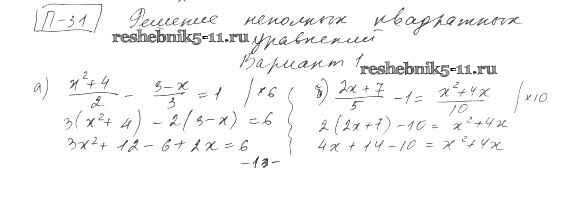 П-31 Решение неполных квадратных
reshebnik5-11.ru
уравнений
Вариант 1
reshebnik5-11.ru
а) (x²+4)/2 - (3-x)/3 = 1 | ×6
3(x²+4) - 2(3-x) = 6
3x² + 12 - 6 + 2x = 6
б) (2x+7)/5 - 1 = (x²+4x)/10 | ×10
2(2x+7) - 10 = x²+4x
4x + 14 - 10 = x²+4x
-13-